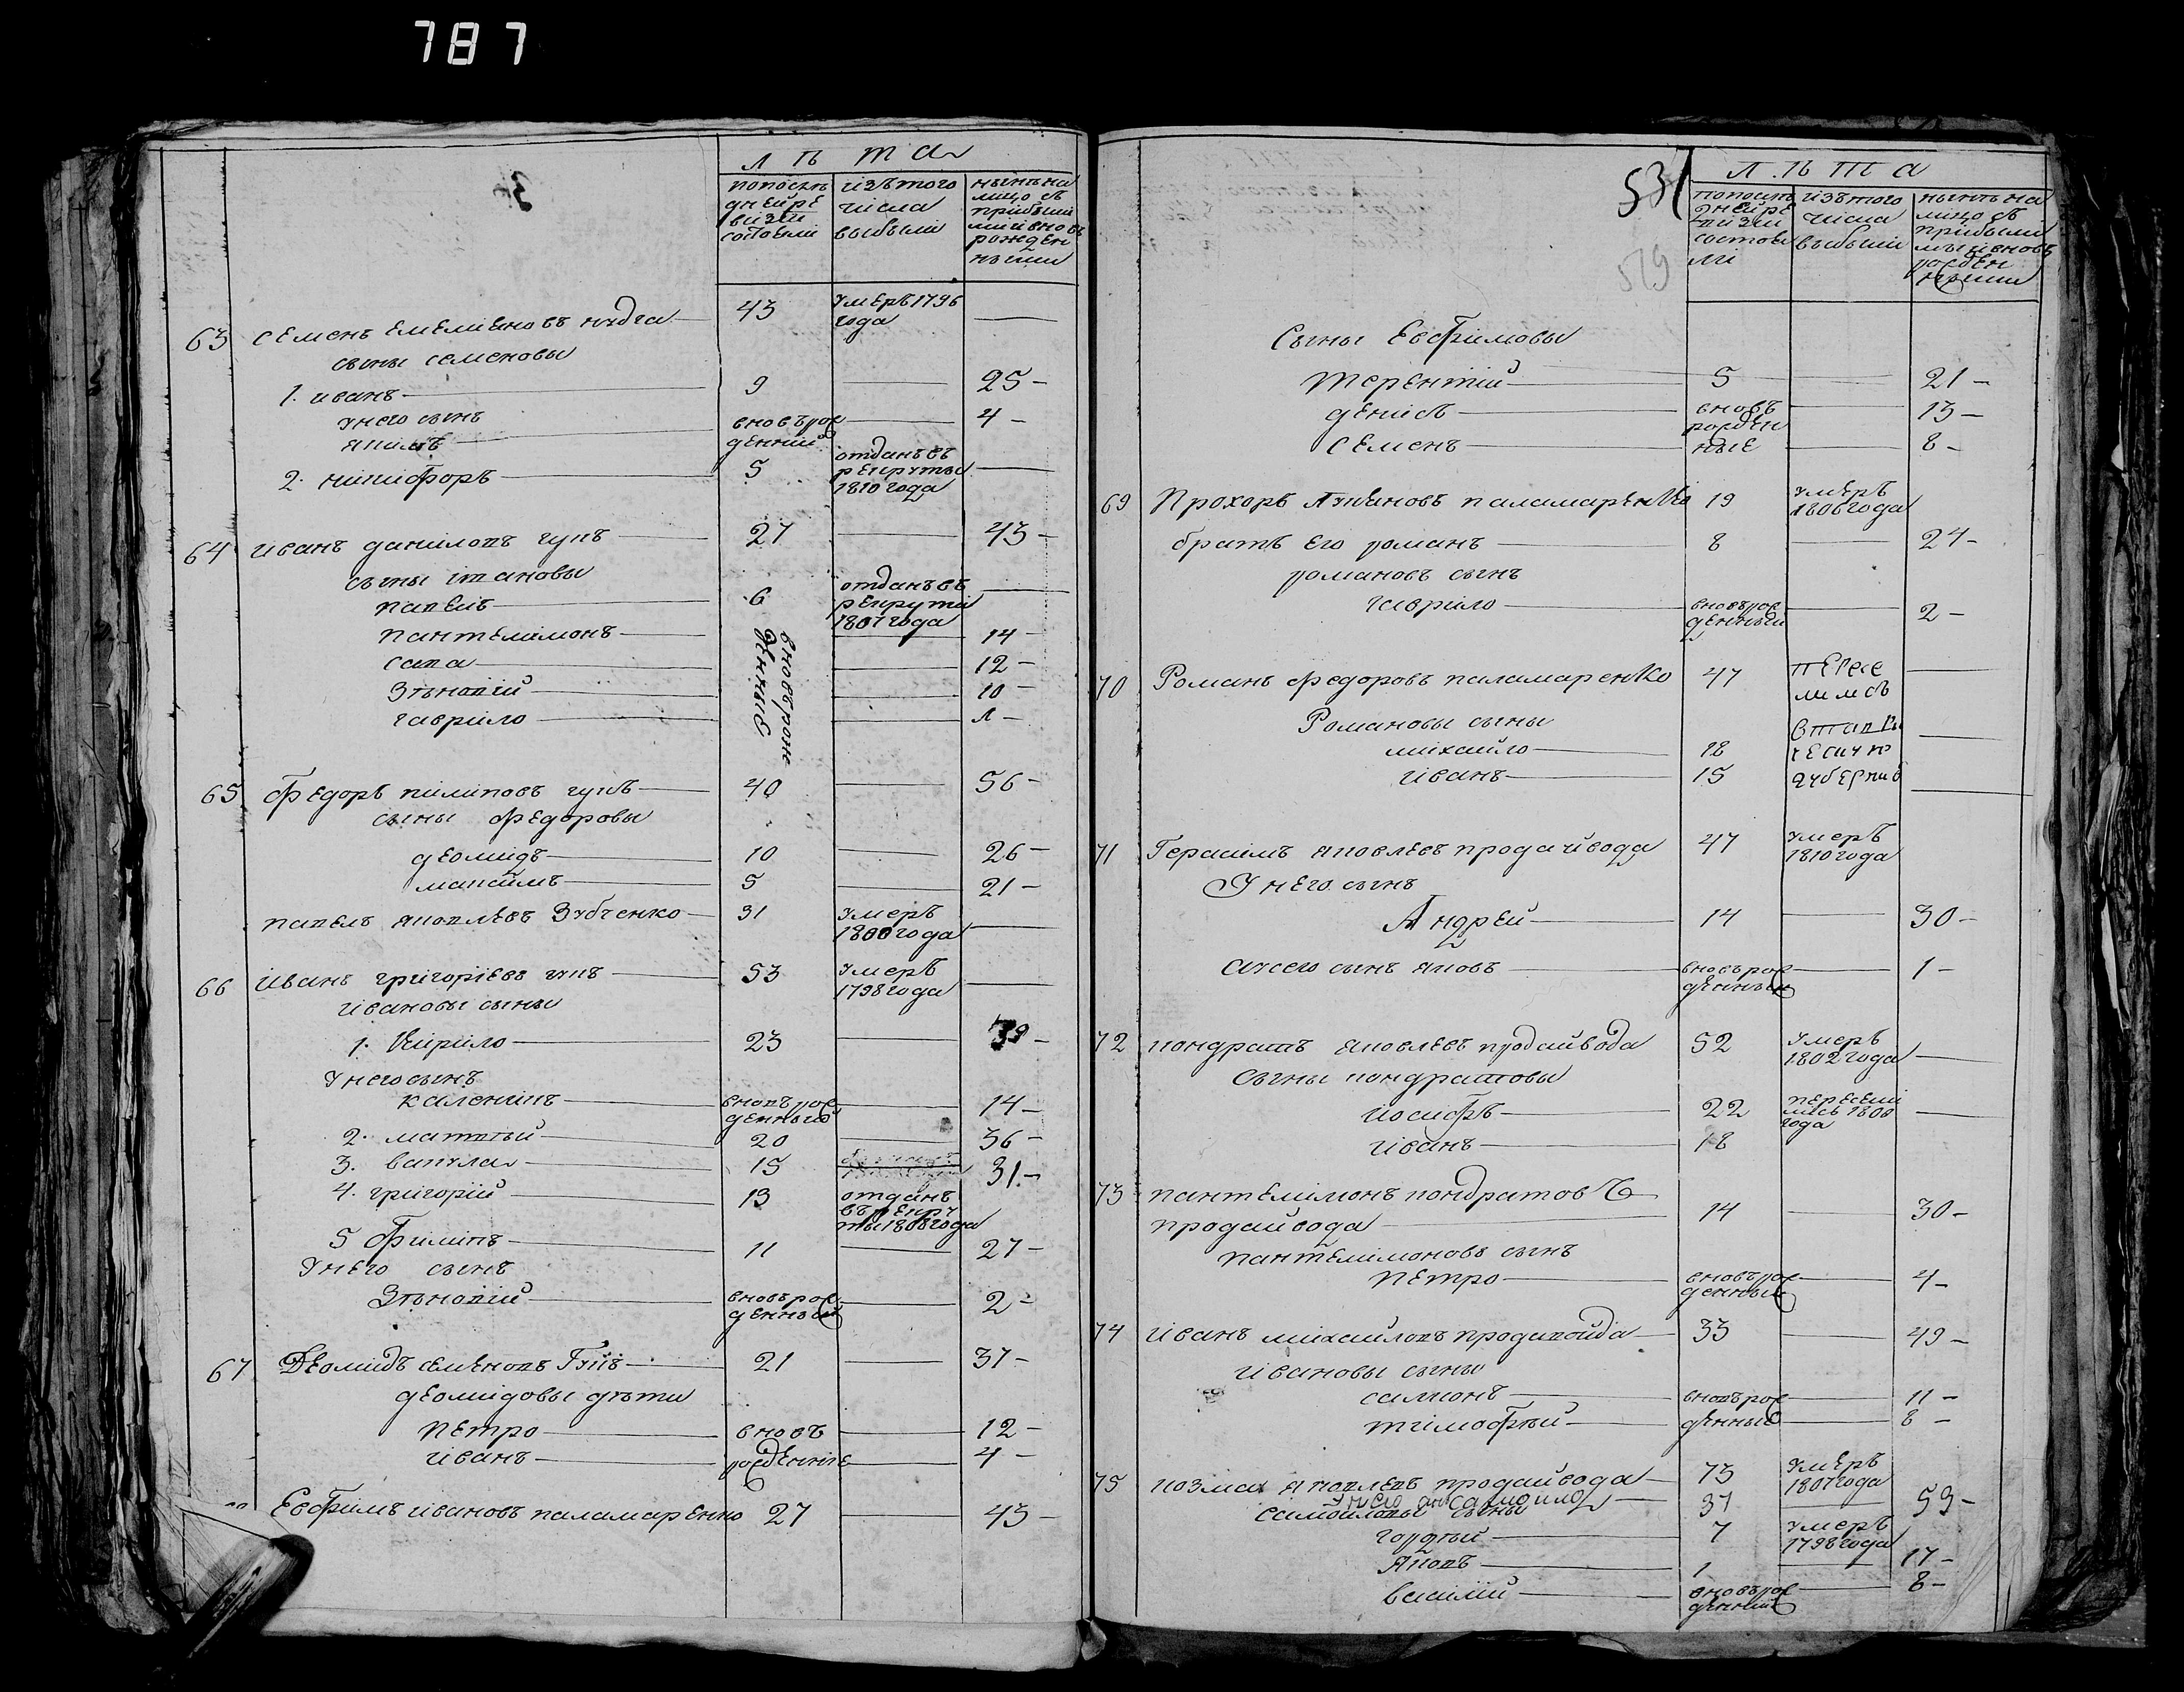 787
Лѣта
по последней ревизіи состояли
изъ того числа выбыли
нынѣ на лицо съ прибылыми и вновь рожденными
63 Семенъ Емелиановъ 43 умеръ 1796 года —
сыны семеновы
1. иванъ 9 — 25 —
у него сынъ
вновьрожденний — 4 —
2. никифоръ 5 отданъ въ рекруты 1810 года —
64 иванъ даниловъ гунъ 27 — 43 —
сыны ивановы
павелъ 6 отданъ въ рекрути 1807 года —
пантелимонъ вновьрожденные — 14 —
сава — 12 —
Зѣновий — 10 —
гаврило —
65 Федоръ пилиповъ гунъ 40 — 56 —
сыны Федоровы
деомидъ 10 — 26 —
максимъ 5 — 21 —
павелъ яковлевъ Зубченко 31 умеръ 1800 года —
66 иванъ григориевъ гунъ 53 умеръ 1798 года —
ивановы сыны
1. Кирило 23 — 39 —
у него сынъ
каленикъ вновьрожденный — 14 —
2. матвѣй 20 — 36 —
3. вакула 15 31 —
4. григорий 13 отданъ въ рекруты 1808 года
5 Филипъ 11 — 27 —
у него сынъ
Зѣновий вновьрожденный — 2 —
67 Деомидъ семеновъ 21 — 37 —
деомидовы дѣти
петро вновь — 12 —
иванъ рожденніе — 4 —
Евфимъ ивановъ паламаренко 27 — 43 —
531
519
Лѣта
по последней ревизіи состояли
изъ того числа выбыли
нынѣ на лицо съ прибылыми и вновь рожденными
Сыны Евфимовы
терентій 5 — 21 —
денисъ вновь — 13 —
семенъ рожденные — 8 —
69 Прохоръ паламаренко 19 умеръ 1806 года
братъ его романъ 8 — 24 —
романовъ сынъ
гаврило вновьрожденный — 2 —
70 Романъ Федоровъ паламаренко 47 пересе —
лились
Романовы сыны
михайло 18 —
иванъ 15 —
71 Герасимъ яковлевъ продайвода 47 умеръ 1810 года
У него сынъ
Андрей 14 — 30 —
а у сего сынъ яковъ вновьрожденный — 1 —
72 кондратъ яковлевъ продайвода 52 умеръ 1802 года —
Сыны кондратовы
иосифъ 22 переселились 1808 года —
иванъ 18
73 пантелимонъ кондратовъ
продайвода 14 — 30 —
пантелимоновъ сынъ
петро вновьрожденный — 4 —
74 иванъ михайловъ продайвода 33 — 49 —
ивановы сыны
самионъ вновьрожденные — 11 —
тимофѣй — 8 —
75 козма яковлевъ продайвода 73 умеръ 1807 года
у него сынъ самойло 37 — 53 —
самойловы сыны
гордѣй 7 умеръ 1798 года
яковъ 1 — 17 —
василий вновьрожденний — 8 —